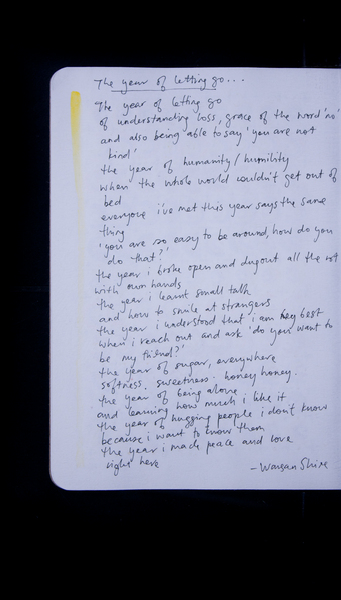 The year of letting go...
The year of letting go
of understanding loss, grace of the word 'no'
and also being able to say 'you are not
kind'
the year of humanity/humility
when the whole world couldn't get out of
bed
everyone i've met this year says the same
thing
'you are so easy to be around, how do you
do that?'
the year i broke open and dug out all the rot
with own hands
the year i learnt small talk
and how to smile at strangers
the year i understood that i am my best
when i reach out and ask 'do you want to
be my friend?'
the year of sugar, everywhere
softness. sweetness. honey honey.
the year of being alone
and learning how much i like it
the year of hugging people i don't know
because i want to know them
the year i made peace and love
right here
- Warsan Shire